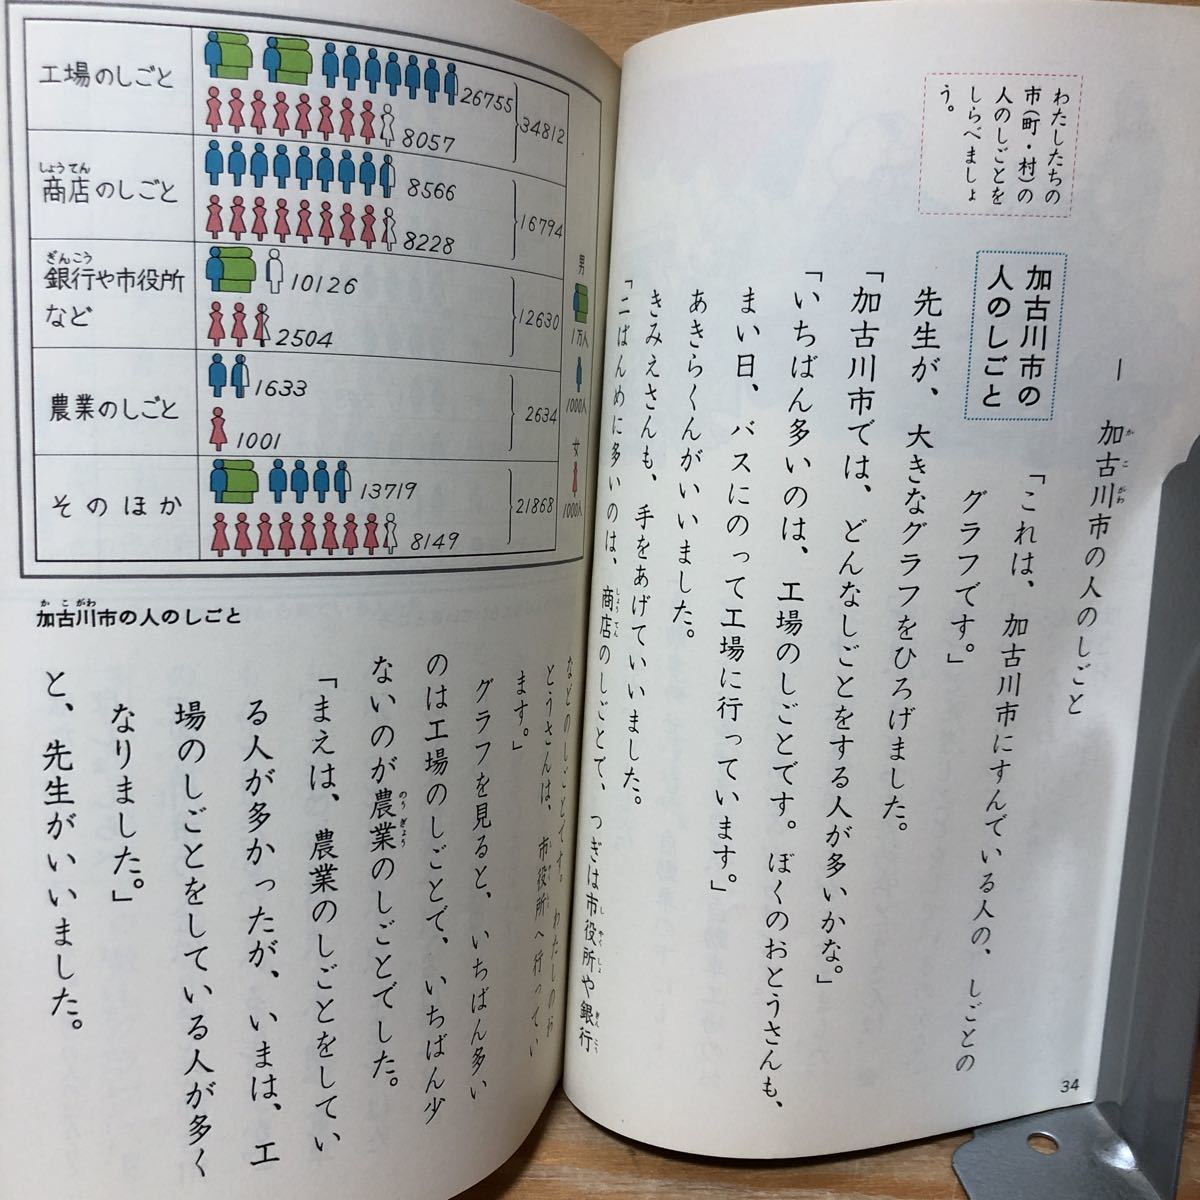 わたしたちの
市(町・村)の
人のしごとを
しらべましょ
う。
一 加古川市の人のしごと
かこがわ
加古川市の
人のしごと
「これは、加古川市にすんでいる人の、しごとの
グラフです。」
先生が、大きなグラフをひろげました。
「加古川市では、どんなしごとをする人が多いかな。」
「いちばん多いのは、工場のしごとです。ぼくのおとうさんも、
まい日、バスにのって工場に行っています。」
あきらくんがいいました。
きみえさんも、手をあげていいました。
「二ばんめに多いのは、商店のしごとで、つぎは市役所や銀行
しょうてん
しやくしょ
ぎんこう
34
工場のしごと
26755
8057
34812
しょうてん
商店のしごと
8566
8228
16794
ぎんこう
銀行や市役所
など
10126
2504
12630
農業のしごと
1633
1001
2634
そのほか
13719
8149
21868
男
1万人
1000人
女
1000人
かこがわ
加古川市の人のしごと
などのしごとです。わたしのお
とうさんは、市役所へ行ってい
ます。」
グラフを見ると、いちばん多い
のは工場のしごとで、いちばん少
ないのが農業のしごとでした。
のうぎょう
「まえは、農業のしごとをしてい
る人が多かったが、いまは、工
場のしごとをしている人が多く
なりました。」
と、先生がいいました。